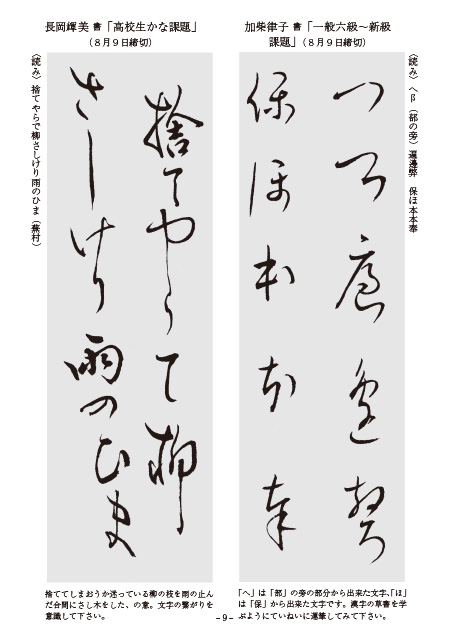 加柴律子 書「一般六級～新級
課題」（8月9日締切）
〈読み〉へβ（部の旁）遍邊弊　保ほ本本奉
へ阝遍邊弊
保ほ本本奉
「へ」は「部」の旁の部分から出来た文字、「ほ」
は「保」から出来た文字です。漢字の草書を学
ぶようにていねいに運筆してみて下さい。
長岡輝美 書「高校生かな課題」
（8月9日締切）
捨てやらて柳
さしけり雨のひま
〈読み〉捨てやらで柳さしけり雨のひま（蕪村）
捨ててしまおうか迷っている柳の枝を雨の止ん
だ合間にさし木をした、の意。文字の繋がりを
意識して下さい。
-9-